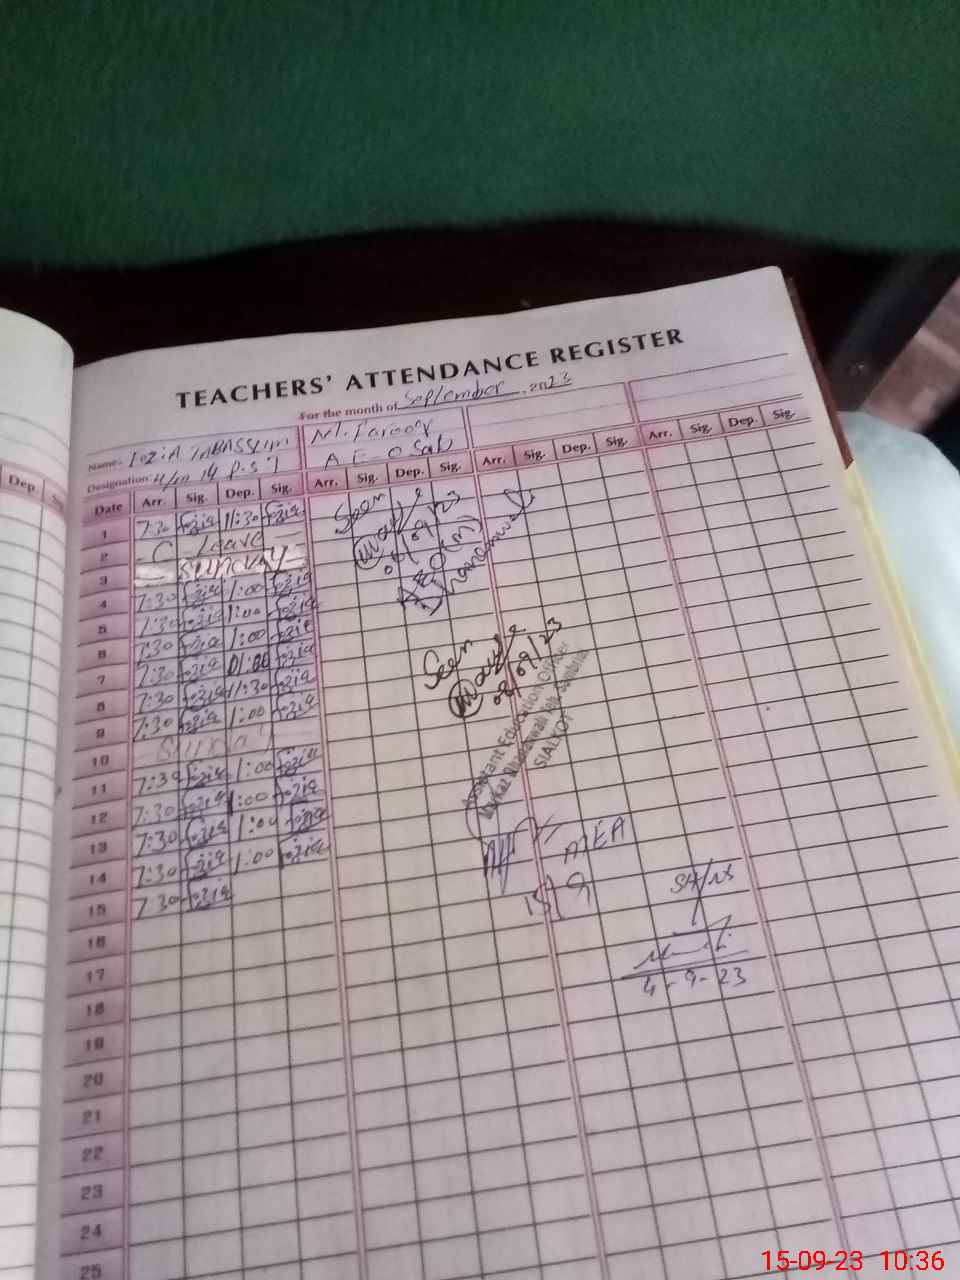 TEACHERS' ATTENDANCE REGISTER
For the month of September, 2023
Name: FOZIA TABASSUM M. Farooq
Designation: H/M 14 P.S.T A E-O Sab
Dep.
Date Arr. Sig. Dep. Sig. Arr. Sig. Dep. Sig. Arr. Sig. Dep. Sig. Arr. Sig. Dep. Sig.
1 7:30 Fozia 11:30 Fozia
2 - C - Leave -
3 - Sunday -
4 7:30 Fozia 1:00 Fozia
5 7:30 Fozia 1:00 Fozia
6 7:30 Fozia 1:00 Fozia
7 7:30 Fozia 01:00 Fozia
8 7:30 Fozia 11:30 Fozia
9 7:30 Fozia 1:00 Fozia
10 Sunday
11 7:30 Fozia 1:00 Fozia
12 7:30 Fozia 1:00 Fozia
13 7:30 Fozia 1:00 Fozia
14 7:30 Fozia 1:00 Fozia
15 7:30 Fozia
16
17
18
19
20
21
22
23
24
25
Seen
09/23
AEO(M)
Seen
08/09/23
Assistant Education Officer
Markaz
SIALKOT
MEA
15/9
4-9-23
15-09-23 10:36